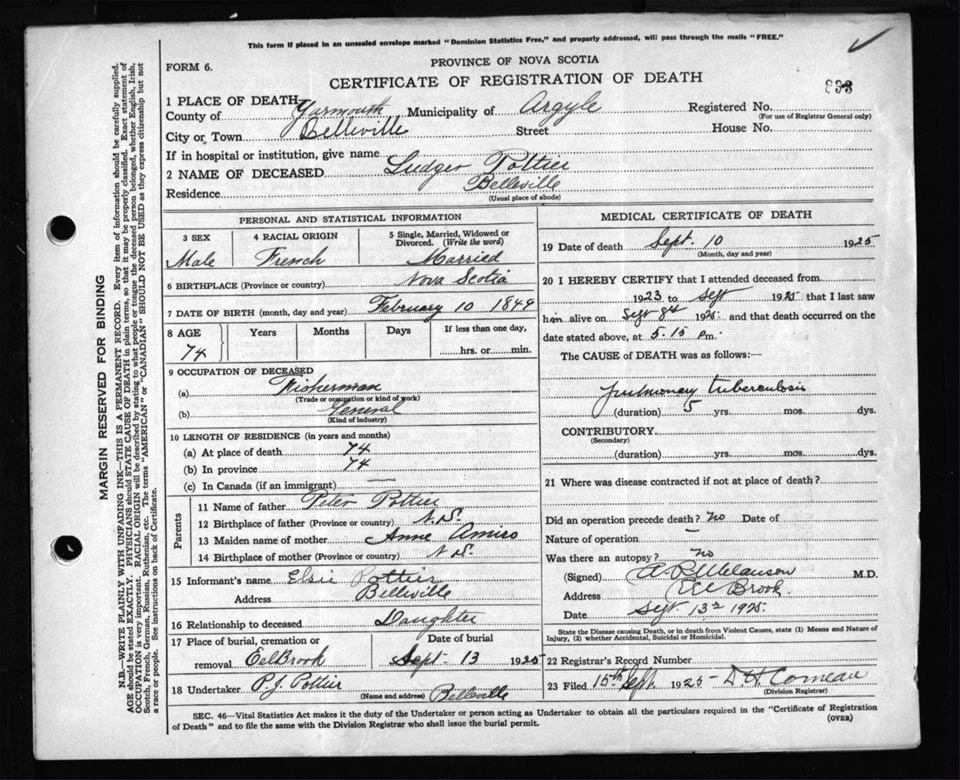 This form if placed in an unsealed envelope marked "Dominion Statistics Free," and properly addressed, will pass through the mails "FREE."
PROVINCE OF NOVA SCOTIA
FORM 6.
CERTIFICATE OF REGISTRATION OF DEATH
1 PLACE OF DEATH
County of Yarmouth Municipality of Argyle Registered No.
(For use of Registrar General only)
City or Town Belleville Street House No.
If in hospital or institution, give name
2 NAME OF DECEASED Ludger Pottier
Residence Belleville
(Usual place of abode)
PERSONAL AND STATISTICAL INFORMATION
3 SEX 4 RACIAL ORIGIN 5 Single, Married, Widowed or Divorced. (Write the word)
Male French Married
6 BIRTHPLACE (Province or country) Nova Scotia
7 DATE OF BIRTH (month, day and year) February 10 1849
8 AGE Years Months Days If less than one day,
74 hrs. or min.
9 OCCUPATION OF DECEASED
(a) Fisherman
(Trade or occupation or kind of work)
(b) General
(Kind of industry)
10 LENGTH OF RESIDENCE (in years and months)
(a) At place of death 74
(b) In province 74
(c) In Canada (if an immigrant) —
Parents
11 Name of father Peter Pottier
12 Birthplace of father (Province or country) N.S.
13 Maiden name of mother Anne Amiro
14 Birthplace of mother (Province or country) N S.
15 Informant's name Elsie Pottier
Address Belleville
16 Relationship to deceased Daughter
17 Place of burial, cremation or removal Eel Brook
Date of burial Sept 13 1925
18 Undertaker P. J. Pottier Belleville
(Name and address)
MEDICAL CERTIFICATE OF DEATH
19 Date of death Sept. 10 1925
(Month, day and year)
20 I HEREBY CERTIFY that I attended deceased from
1923 to Sept 1925 that I last saw
him alive on Sept 8th 1925 and that death occurred on
date stated above, at 5.15 pm.
The CAUSE of DEATH was as follows:—
pulmonary tuberculosis
(duration) 5 yrs. mos. dys.
CONTRIBUTORY
(Secondary)
(duration) yrs. mos. dys.
21 Where was disease contracted if not at place of death?
Did an operation precede death? no Date of
Nature of operation
Was there an autopsy? no
(Signed) Melanson M.D.
Address Eel Brook.
Date Sept 13th 1925
State the Disease causing Death, or in death from Violent Causes, state (1) Means and Nature of
Injury, (2) whether Accidental, Suicidal or Homicidal.
22 Registrar's Record Number
23 Filed 15th Sept. 1925 D. H Comeau
(Division Registrar)
SEC. 46—Vital Statistics Act makes it the duty of the Undertaker or person acting as Undertaker to obtain all the particulars required in the "Certificate of Registration
of Death" and to file the same with the Division Registrar who shall issue the burial permit.
(OVER)
MARGIN RESERVED FOR BINDING
N.B.—WRITE PLAINLY WITH UNFADING INK—THIS IS A PERMANENT RECORD. Every item of information should be carefully supplied.
AGE should be stated EXACTLY. PHYSICIANS should STATE CAUSE OF DEATH in plain terms, so that it may be properly classified. Exact statement of
OCCUPATION is very important. RACIAL ORIGIN will be described by stating to what people or tongue the deceased person belonged, whether English, Irish,
Scotch, French, German, Russian, Ruthenian, etc. The terms "AMERICAN" or "CANADIAN" SHOULD NOT BE USED as they express citizenship but not
a race or people. See instructions on back of Certificate.